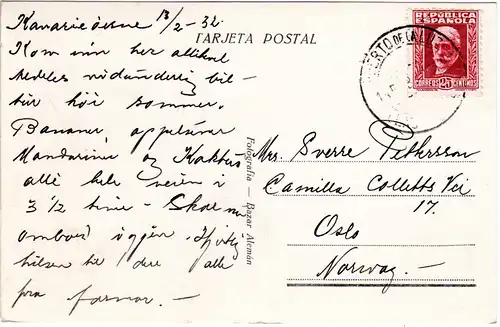 Kanarieöene 13/2 - 32.
TARJETA POSTAL
Kom inn her
vidunderlig bil-
tur höi sommer.
Bananer, appelsiner
Mandariner og Kaktus
alle hele veien i
3 1/2 time - Skal nu
ombord igjen. Hjertlig
hilsen til dere alle
fra farmor. -
Fotografía - Bazar Alemán
REPÚBLICA
ESPAÑOLA
CORREOS 25 CENTIMOS
PUERTO DE LA LUZ
Mrs. Sverre Pettersson
Camilla Colletts Vei
17.
Oslo
Norway. -